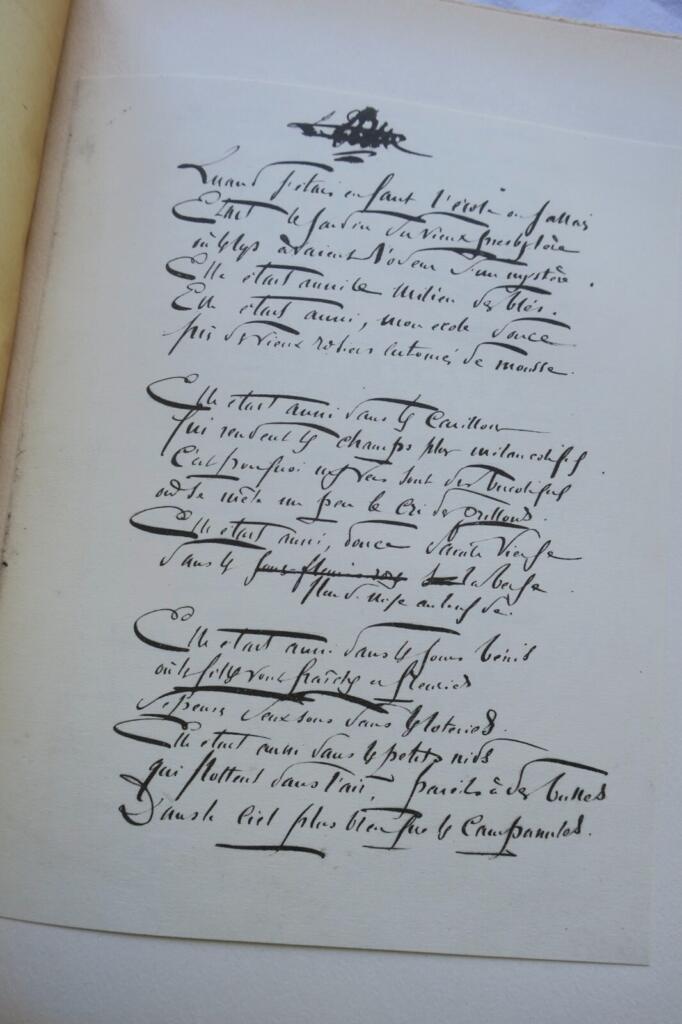 Quand j'étais enfant l'école où j'allais
Etait le jardin du vieux presbytère
où les lys avaient l'odeur d'un mystère.
Elle était aussi le milieu des blés.
Elle était aussi, mon école douce
près de vieux rosiers de mousse.
Elle était aussi dans les carillons
qui rendent les champs plus mélancoliques
C'est pourquoi mes vers sont des bucoliques
où se mêle un peu le cri des grillons.
Elle était aussi, douce Sainte Vierge
dans les la berge
Elle était aussi dans les jours bénis
où les filles vont fraîches et fleuries
dépenser deux sous dans les loteries.
Elle était aussi dans les petits nids
qui flottent dans l'air, pareils à des bulles
Dans le ciel plus bleu que les campanules.